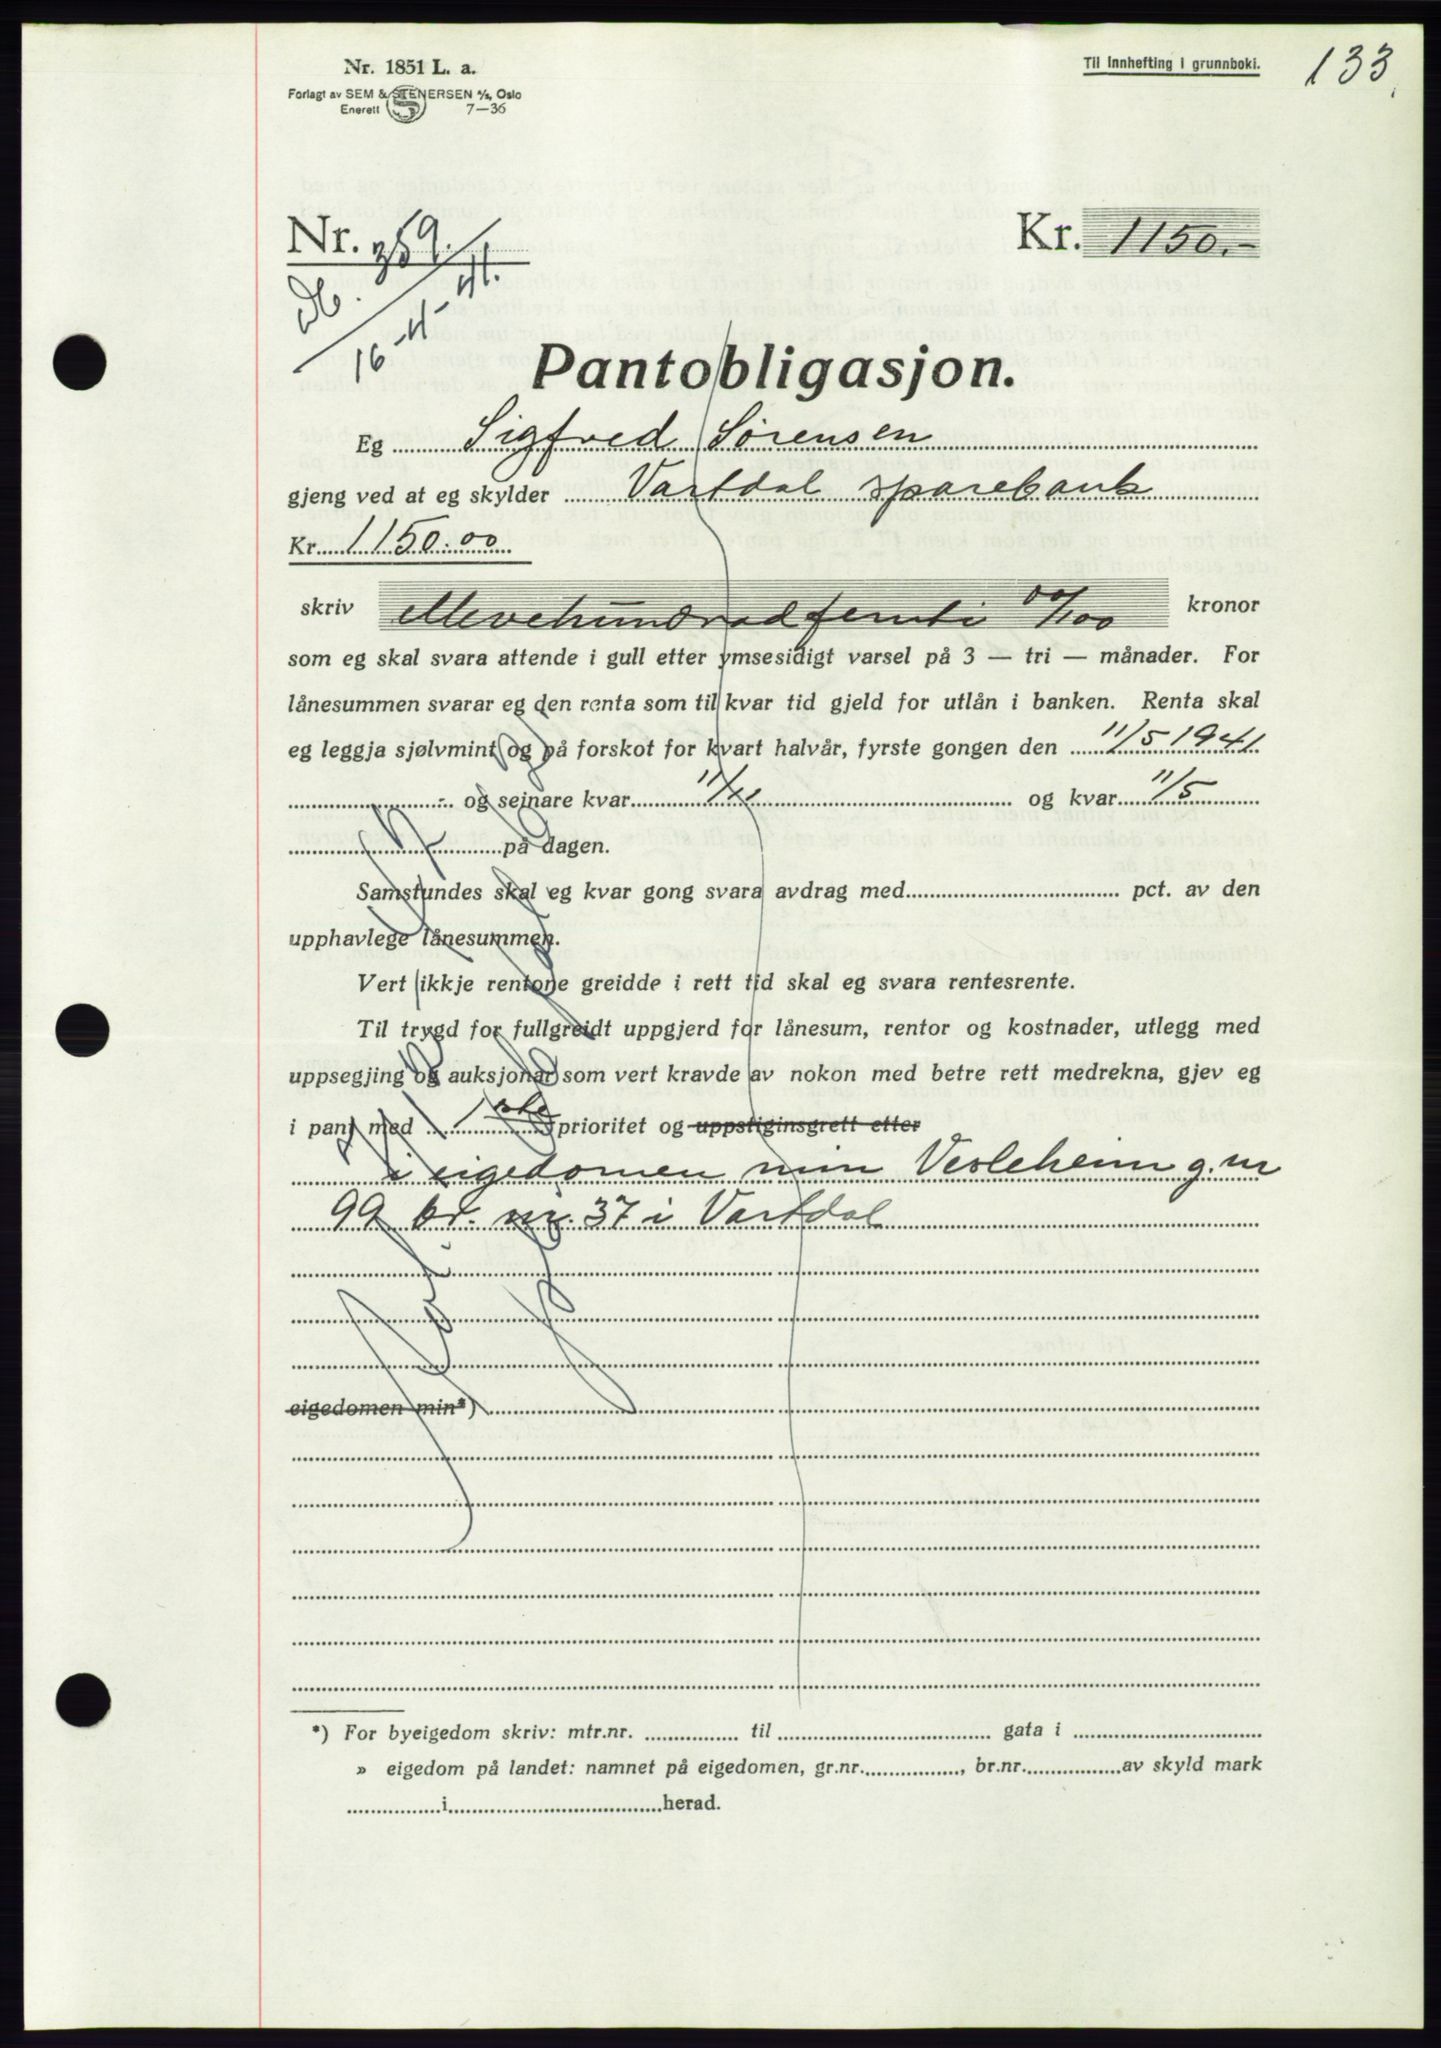 Nr. 1851 L. a.
Forlagt av SEM & STENERSEN A/s, Oslo
Enerett 7—36
Til innhefting i grunnboki.
133
Nr. 359.
16-4-41.
Kr. 1150.-
Pantobligasjon.
Eg Sigfred Sørensen
gjeng ved at eg skylder Vartdal sparebank
Kr. 1150.00
skriv ellevehundradfemti 00/100 kronor
som eg skal svara attende i gull etter ymsesidigt varsel på 3 — tri — månader. For
lånesummen svarar eg den renta som til kvar tid gjeld for utlån i banken. Renta skal
eg leggja sjølvmint og på forskot for kvart halvår, fyrste gongen den 11/5 1941
og seinare kvar 11/11 og kvar 11/5
på dagen.
Samstundes skal eg kvar gong svara avdrag med pct. av den
upphavlege lånesummen.
Vert ikkje rentone greidde i rett tid skal eg svara rentesrente.
Til trygd for fullgreidt uppgjerd for lånesum, rentor og kostnader, utlegg med
uppsegjing og auksjonar som vert kravde av nokon med betre rett medrekna, gjev eg
i pant med 1ste prioritet og uppstiginsgrett etter
i eigedomen min Vesleheim g.nr
99 br. nr. 37 i Vartdal
eigedomen min*)
*) For byeigedom skriv: mtr.nr. til gata i
» eigedom på landet: namnet på eigedomen, gr.nr. , br.nr. av skyld mark
i herad.